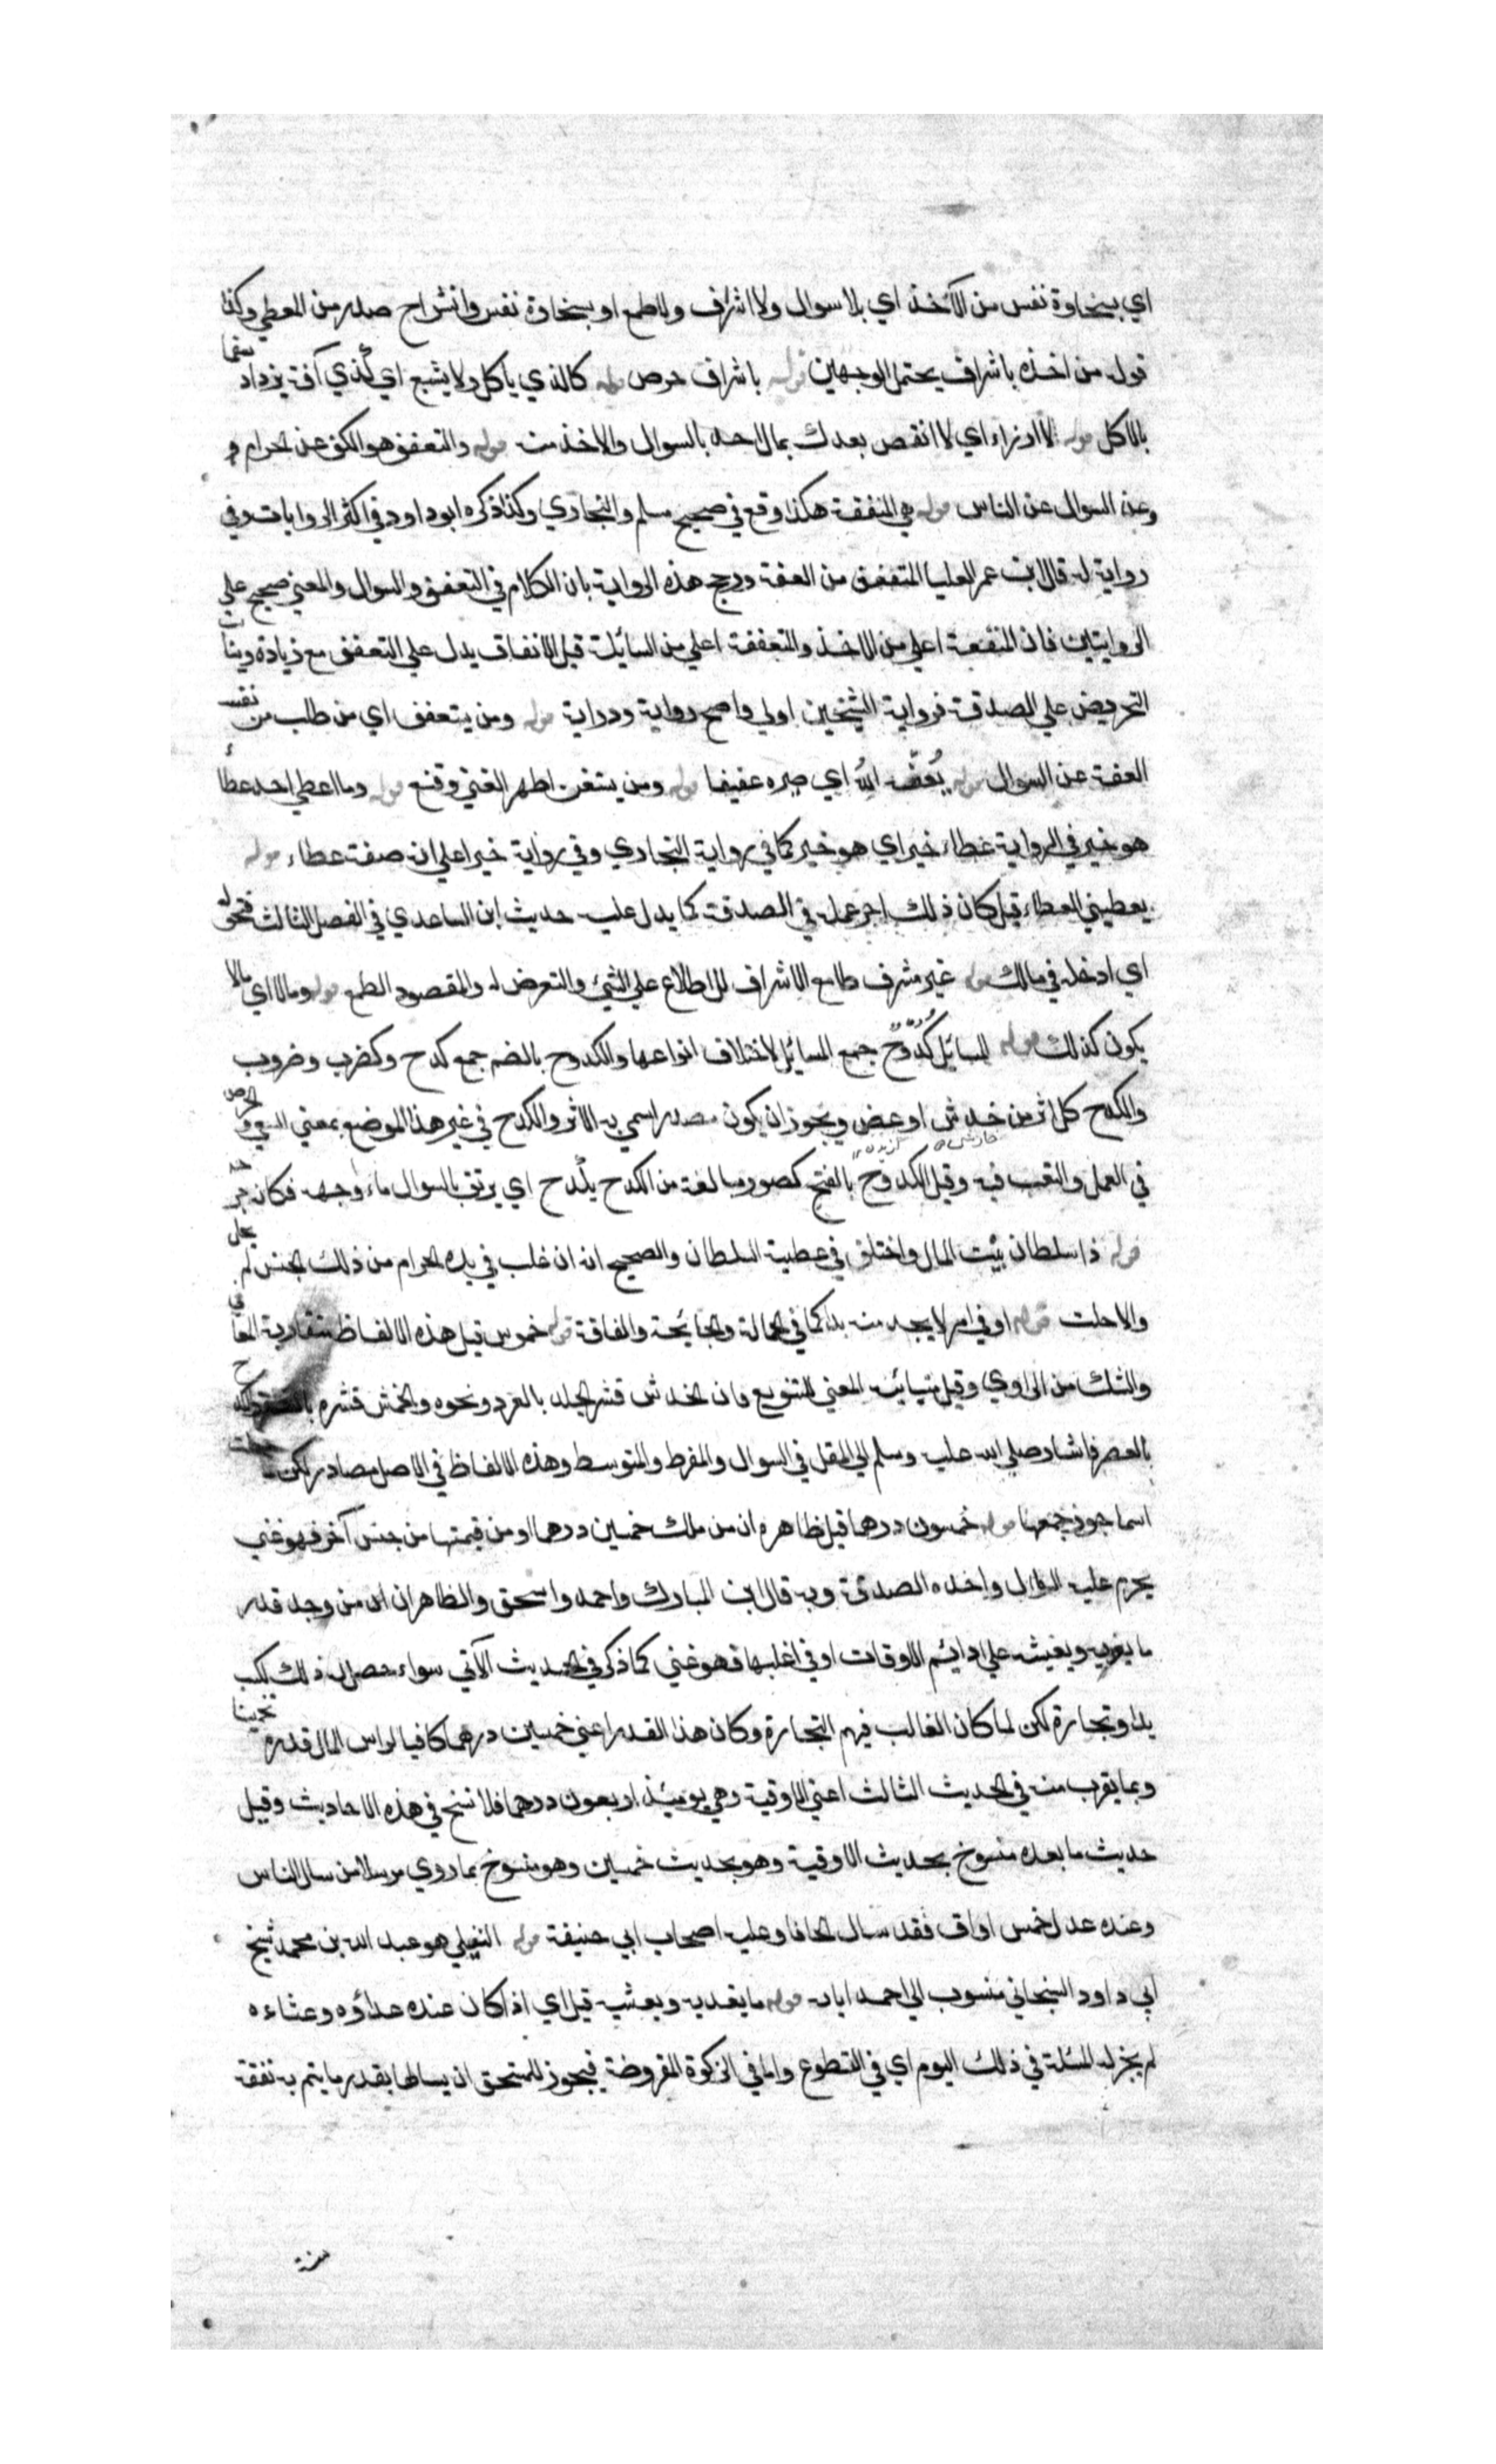 اي بسخاوة نفس من الآخذ اي بلا سوال ولا اشراف ولا طمع او بسخاوة نفس وانشراح صدر من المعطي وكذا
قوله من اخذه باشراف يحتمل الوجهين قوله باشراف حرص قوله كالذي ياكل ولا يشبع اي كذي آفة يزداد سقما
بالاكل قوله لا ارزاء اي لا انقص بعدك بمال احد بالسوال والاخذ منه قوله والتعفف هو الكف عن الحرام و
وعن السوال عن الناس قوله هي المنفقة هكذا وقع في صحيح مسلم والبخاري وكذا ذكره ابو داود في اكثر الروايات وفي
رواية له قال ابن عمر العليا المتعففة من العفة ورجح هذه الرواية بان الكلام في التعفف والسوال والمعني صحيح علي
الروايتين فان المنفقة اعلي من الاخذ والمتعففة اعلي من السائلة قيل الانفاق يدل علي التعفف مع زيادة ويناسب
التحريض علي الصدقة فرواية الشيخين اولي واصح رواية ودراية قوله ومن يتعفف اي من طلب من نفسه
العفة عن السوال قوله يُعفّه اللّٰه اي صيره عفيفا قوله ومن يستغن اظهر الغني وقنع قوله وما اعطي احد عطاءً
هو خير في الرواية عطاء خير اي هو خير كما في رواية البخاري وفي رواية خيرا علي انه صفة عطاء قوله
يعطيني العطاء قيل كان ذلك اجر عمله في الصدقة كما يدل عليه حديث ابن الساعدي في الفصل الثالث قوله
اي ادخله في مالك قوله غير مشرف طامع الاشراف الاطلاع علي الشئ والتعرض له والمقصود الطمع قوله وما لا اي مالا
يكون كذلك قوله المسائل كُدُوحٌ جمع المسائل لاختلاف انواعها والكدوح بالضم جمع كدح وكضرب وضروب
والكدح كل اثر من خدش او عض ويجوز ان يكون مصدرا سمي به الاثر والكدح في غير هذا الموضع بمعني السعي والحرص
في العمل والتعب فيه وقيل الكدوح بالفتح كصبور مبالغة من الكدح يكدح اي يريق بالسوال ماء وجهه فكانه جرحه
قوله ذا سلطان بيت المال واختلف في عطية السلطان والصحيح انه ان غلب في يده الحرام من ذلك الجنس لم يحل
والا حلت قوله او في امر لا يجد منه بدا كما في الحمالة والجائحة والفاقة قوله خموش قيل هذه الالفاظ متقاربة المعاني
والشك من الراوي وقيل متباينة المعني للتنويع فان الخدش قشر الجلد بالعود ونحوه والخمش قشره
بالعصر فاشار صلي الله عليه وسلم الي المقل في السوال والمفرط والمتوسط وهذه الالفاظ في الاصل مصادر لكن جعلت
اسما جوز جمعها قوله خمسون درهما قيل ظاهره ان من ملك خمسين درهما او من قيمتها من جنس آخر فهو غني
يحرم عليه السوال واخذه الصدقة وبه قال ابن المبارك واحمد واسحق والظاهر ان من وجد قدر
ما يغديه ويعشيه علي دائم الاوقات او في اغلبها فهو غني كما ذكر في الحديث الآتي سواء حصل له ذلك بكسب
يد او تجارة لكن لما كان الغالب فيهم التجارة وكان هذا القدر اعني خمسين درهما كافيا لراس المال قدره تخمينا
وبما يقرب منه في الحديث الثالث اعني الاوقية وهي يومئذ اربعون درهما فلا نسخ في هذه الاحاديث وقيل
حديث ما بعده منسوخ بحديث الاوقية وهو بحديث خمسين وهو منسوخ بما روي مرسلا من سال الناس
وعنده عدل خمس اواق فقد سال الحافا وعليه اصحاب ابي حنيفة قوله النفيلي هو عبد الله بن محمد شيخ
ابي داود السجستاني منسوب الي احد ابائه قوله ما يغديه ويعشيه قيل اي اذا كان عنده غداؤه وعشاءه
لم يجز له المسئلة في ذلك اليوم اي في التطوع واما في الزكوة المفروضة فيجوز للمستحق ان يسالها بقدر ما يتم به نفقة
سنة